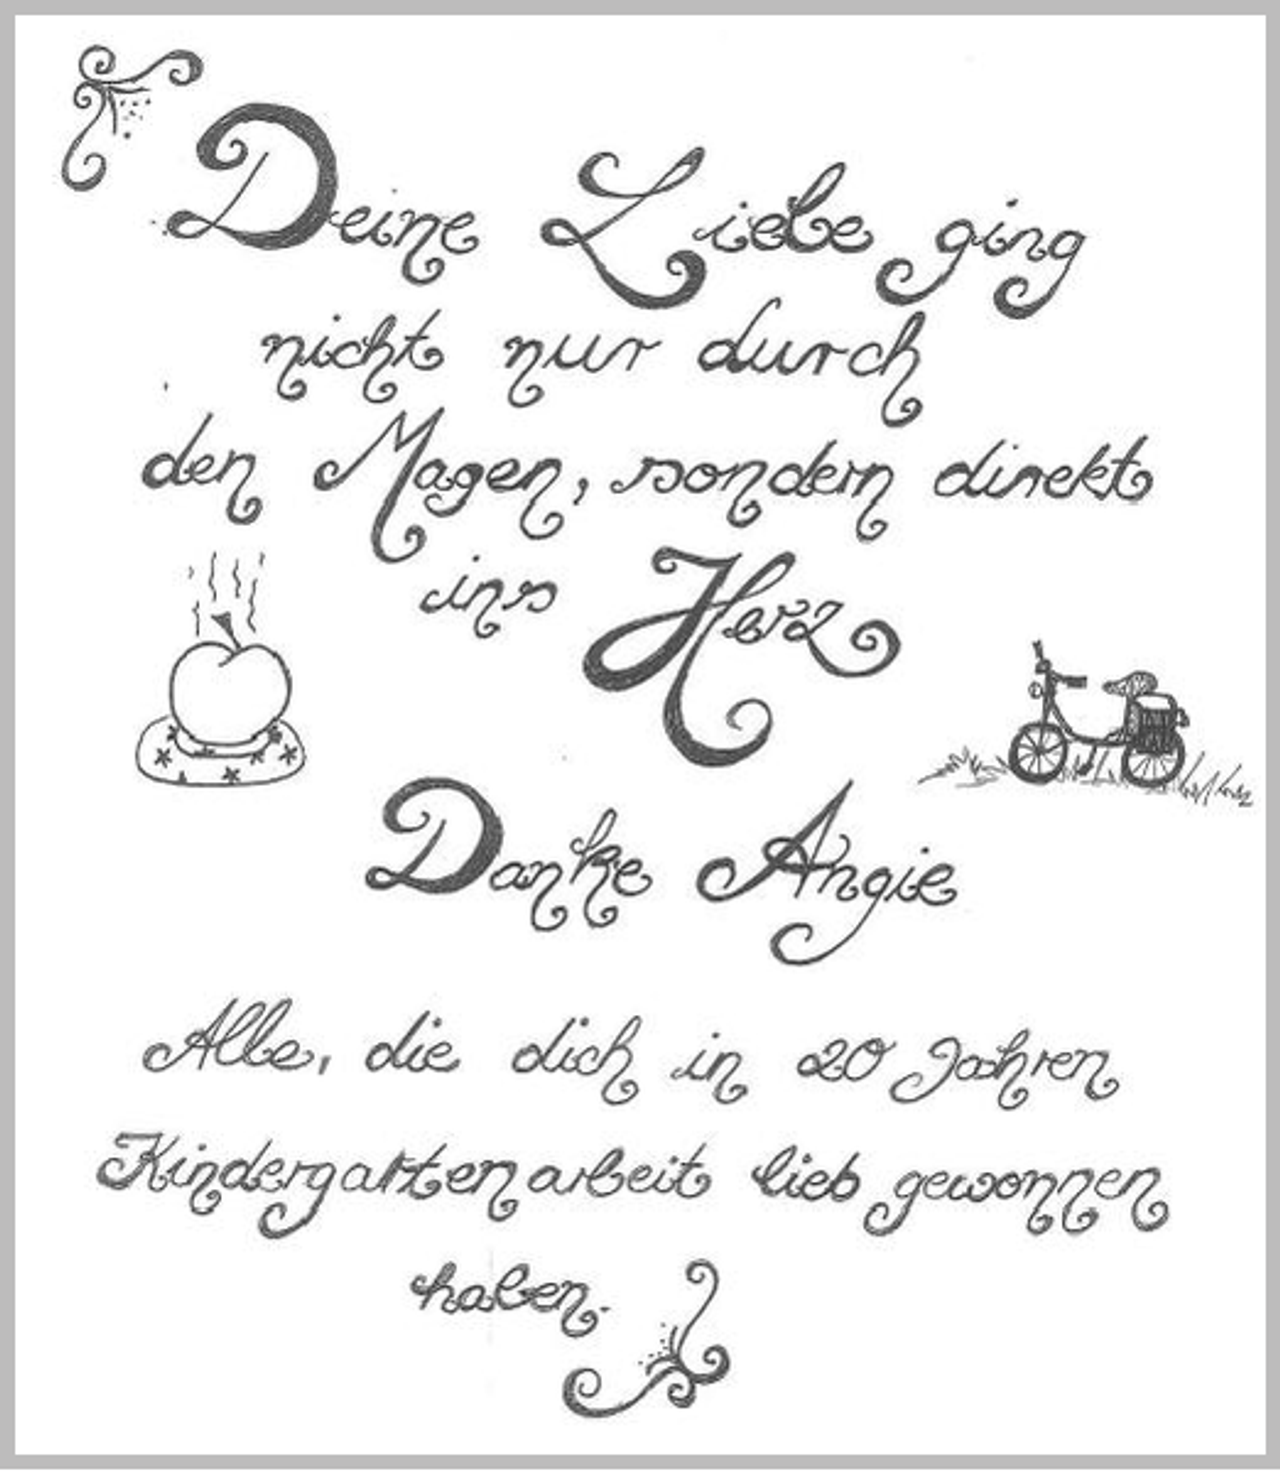 Deine Liebe ging
nicht nur durch
den Magen, sondern direkt
ins Herz
Danke Angie
Alle, die dich in 20 Jahren
Kindergartenarbeit lieb gewonnen
haben.